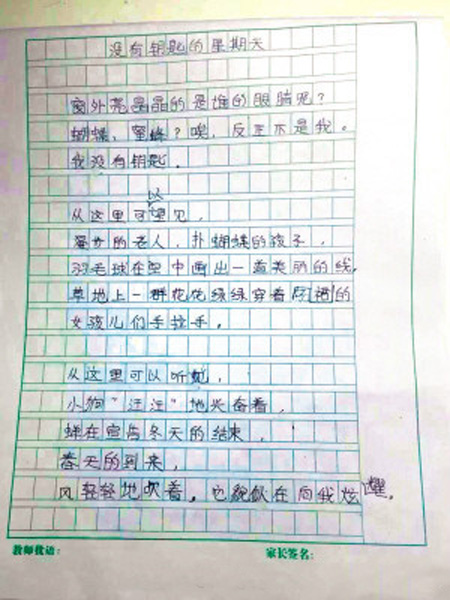 没有钥匙的星期天
窗外亮晶晶的是谁的眼睛呢?
蝴蝶、蜜蜂?唉,反正不是我。
我没有钥匙。
从这里可以望见,
的老人,扑蝴蝶的孩子,
羽毛球在空中画出一道美丽的线,
草地上一群花花绿绿穿着的
女孩儿们手拉手。
从这里可以听见,
小狗“汪汪”地兴奋着,
蝉在宣告冬天的结束,
春天的到来,
风轻轻地吹着,它貌似在向我炫耀。
教师批语:
家长签名: